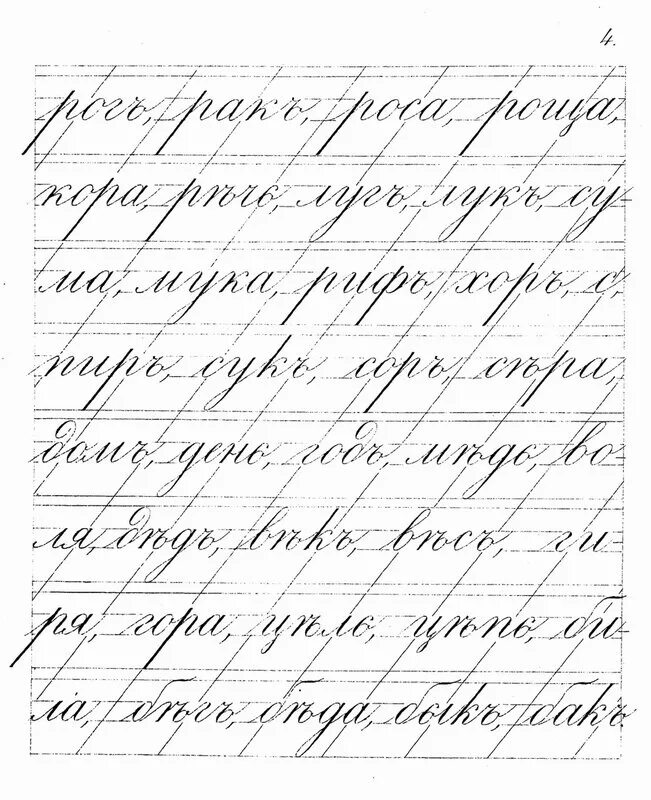 4.
рогъ, ракъ, роса, роща,
кора, рѣчь, лугъ, лукъ, су-
ма, мука, рифъ, хоръ, с,
пиръ, сукъ, соръ, сѣра,
домъ, день, годъ, мѣдь, во-
ля, дѣдъ, вѣкъ, вѣсъ, ги-
ря, гора, цѣль, цѣпь, би-
ла, бѣгъ, бѣда, быкъ, бакъ